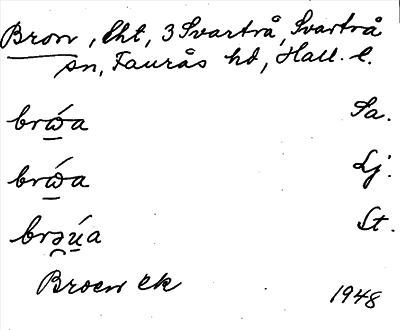 Bron, lht, 3 Svartrå, Svartrå
sn, Faurås hd, Hall. l.
brώa Sa.
brώa Lj.
brəú̯a St.
Broen ek
1948